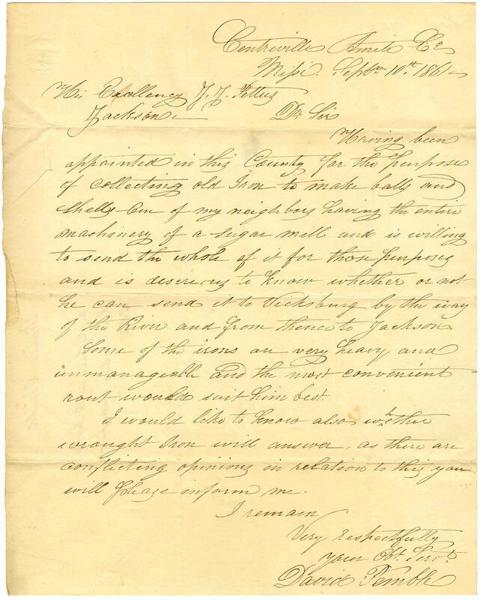 Centreville Amite Co
Missi. Septr. 10th. 1861-
His Excellency J. J. Pettus
Jackson-                Dr Sir
Having been
appointed in this County for the purpose
of collecting old Iron to make balls and
shells- One of my neighbors having the entire
machinery of a sugar mill and is willing
to send the whole of it for those purposes
and is desireing to know whether or not
he can send it to Vicksburg by the way
of the River and from thence to Jackson
Some of the irons are very heavy and
unmanageable and the most convenient
rout would suit him best.
I would like to know also whther
wrought Iron will answer, as there are
conflicting opinions in relation to this you
will please inform me.
I remain
Very respectfully
your Obt. Servt.
David Pemble